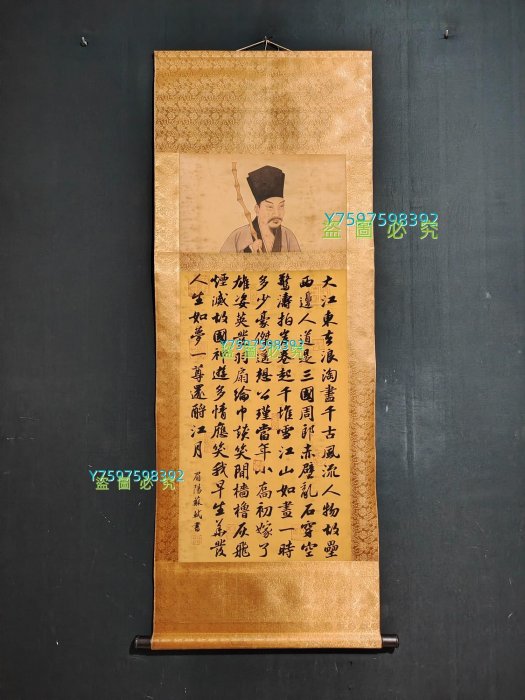 Y7597598392
盜圖必究
大江東去浪淘盡千古風流人物故壘
西邊人道是三國周郎赤壁亂石穿空
驚濤拍岸卷起千堆雪江山如畫一時
多少豪傑遙想公瑾當年小喬初嫁了
雄姿英發羽扇綸巾談笑間檣櫓灰飛
煙滅故國神遊多情應笑我早生華髮
人生如夢一尊還酹江月
眉陽蘇軾書
Y7597598392
盜圖必究
Y7597598392
盜圖必究